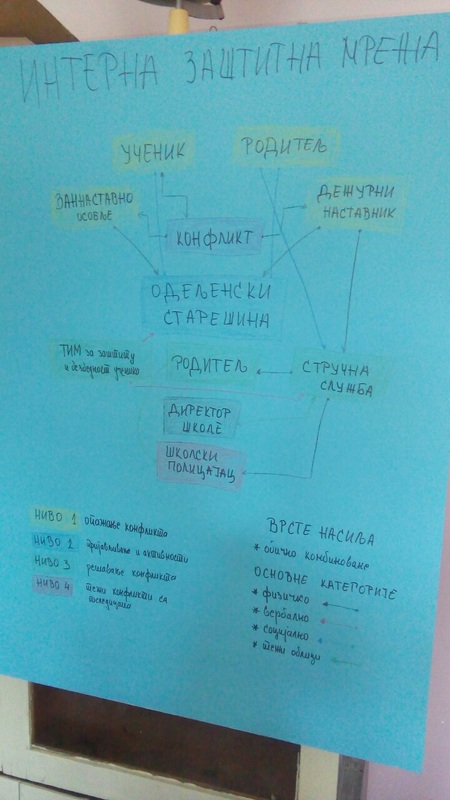 ИНТЕРНА ЗАШТИТНА МРЕЖА
УЧЕНИК
РОДИТЕЉ
ВАННАСТАВНО
ОСОБЉЕ
ДЕЖУРНИ
НАСТАВНИК
КОНФЛИКТ
ОДЕЉЕНСКИ
СТАРЕШИНА
ТИМ за заштиту
и безбедност ученика
РОДИТЕЉ
СТРУЧНА
СЛУЖБА
ДИРЕКТОР
ШКОЛЕ
ШКОЛСКИ
ПОЛИЦАЈАЦ
НИВО 1 опажање конфликта
НИВО 2 пријављивање и активности
НИВО 3 решавање конфликта
НИВО 4 тежи конфликти са
последицама
ВРСТЕ НАСИЉА
* обично комбиноване
ОСНОВНЕ КАТЕГОРИЈЕ
* физичко
* вербално
* социјално
* тежи облици